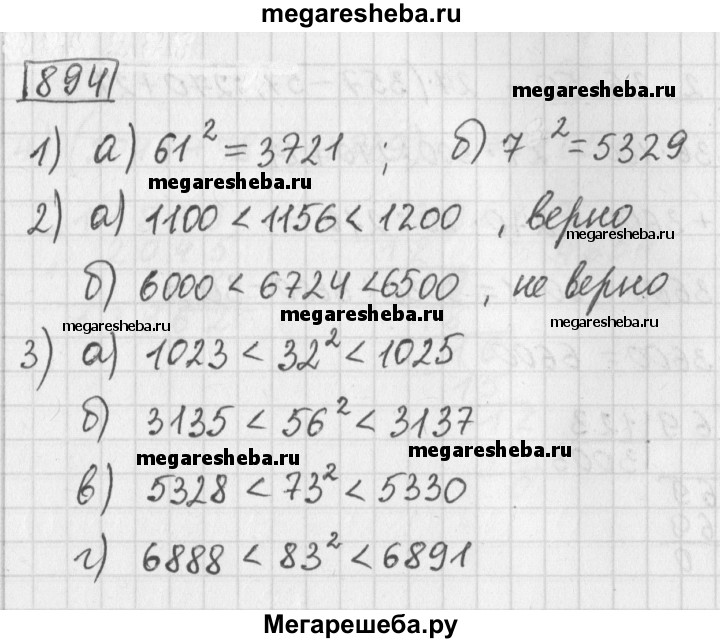 megaresheba.ru
894
megaresheba.ru
1) а) 61² = 3721 ; б) 7 ² = 5329
megaresheba.ru
2) а) 1100 < 1156 < 1200 , верно
megaresheba.ru
б) 6000 < 6724 < 6500 , не верно
megaresheba.ru megaresheba.ru megaresheba.ru
3) а) 1023 < 32² < 1025
б) 3135 < 56² < 3137
megaresheba.ru megaresheba.ru
в) 5328 < 73² < 5330
г) 6888 < 83² < 6891
Мегарешеба.ру